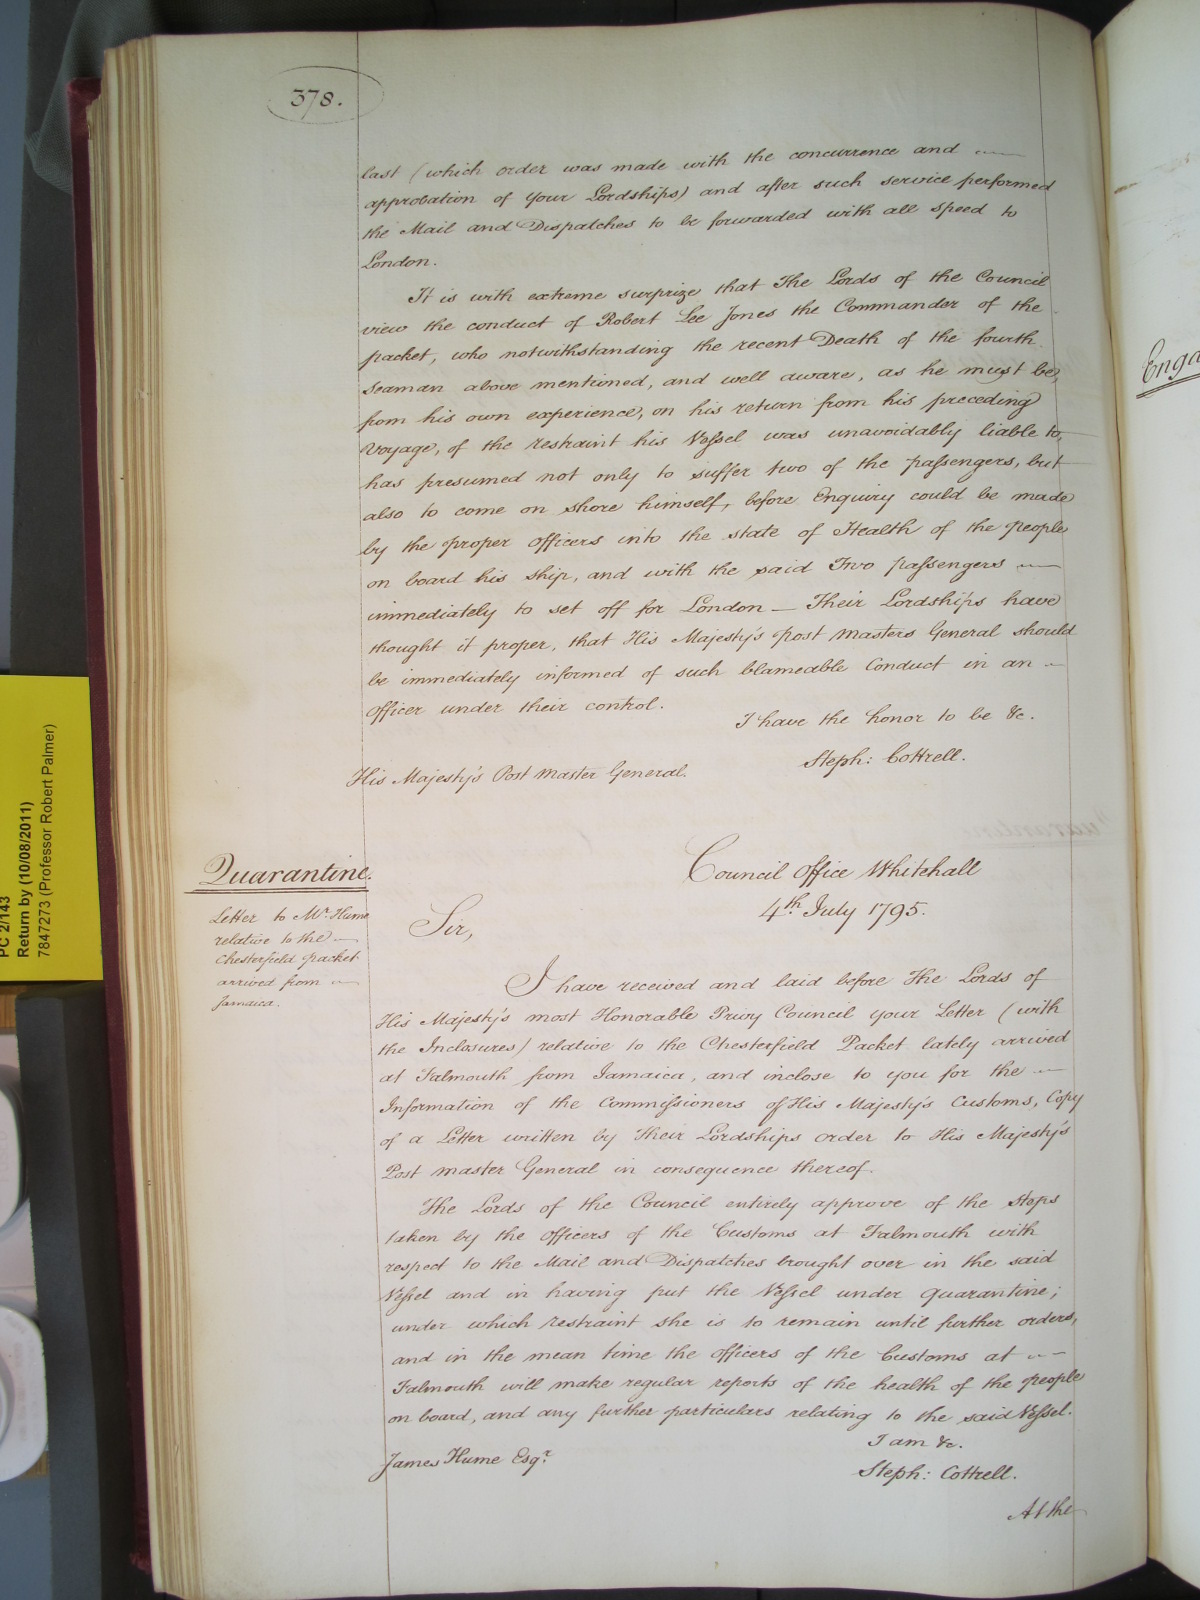 378.
last (which order was made with the concurrence and
approbation of your Lordships) and after such service performed
the Mail and Dispatches to be forwarded with all speed to
London.
It is with extreme surprize that The Lords of the Council
view the conduct of Robert Lee Jones the Commander of the
packet, who notwithstanding the recent Death of the fourth
seaman above mentioned, and well aware, as he must be,
from his own experience, on his return from his preceding
voyage, of the restraint his Vessel was unavoidably liable to,
has presumed not only to suffer two of the passengers, but
also to come on shore himself, before Enquiry could be made
by the proper officers into the state of Health of the people
on board his ship, and with the said Two passengers
immediately to set off for London — Their Lordships have
thought it proper, that His Majesty's post Masters General should
be immediately informed of such blameable Conduct in an
Officer under their control.
I have the honor to be &c.
Steph: Cottrell.
His Majesty's Post Master General.
Quarantine.
Letter to Mr. Hume
relative to the
Chesterfield packet
arrived from
Jamaica.
Council Office Whitehall
4th. July 1795.
Sir,
I have received and laid before The Lords of
His Majesty's most Honorable Privy Council your Letter (with
the Inclosures) relative to the Chesterfield Packet lately arrived
at Falmouth from Jamaica, and inclose to you for the
Information of the Commissioners of His Majesty's Customs, Copy
of a Letter written by Their Lordships order to His Majesty's
Post master General in consequence thereof.
The Lords of the Council entirely approve of the steps
taken by the officers of the Customs at Falmouth with
respect to the Mail and Dispatches brought over in the said
Vessel and in having put the Vessel under quarantine;
under which restraint she is to remain until further orders,
and in the mean time the officers of the Customs at
Falmouth will make regular reports of the health of the people
on board, and any further particulars relating to the said Vessel.
I am &c.
Steph: Cottrell.
James Hume Esqr.
At the
PC 2/143
Return by (10/08/2011)
7847273 (Professor Robert Palmer)